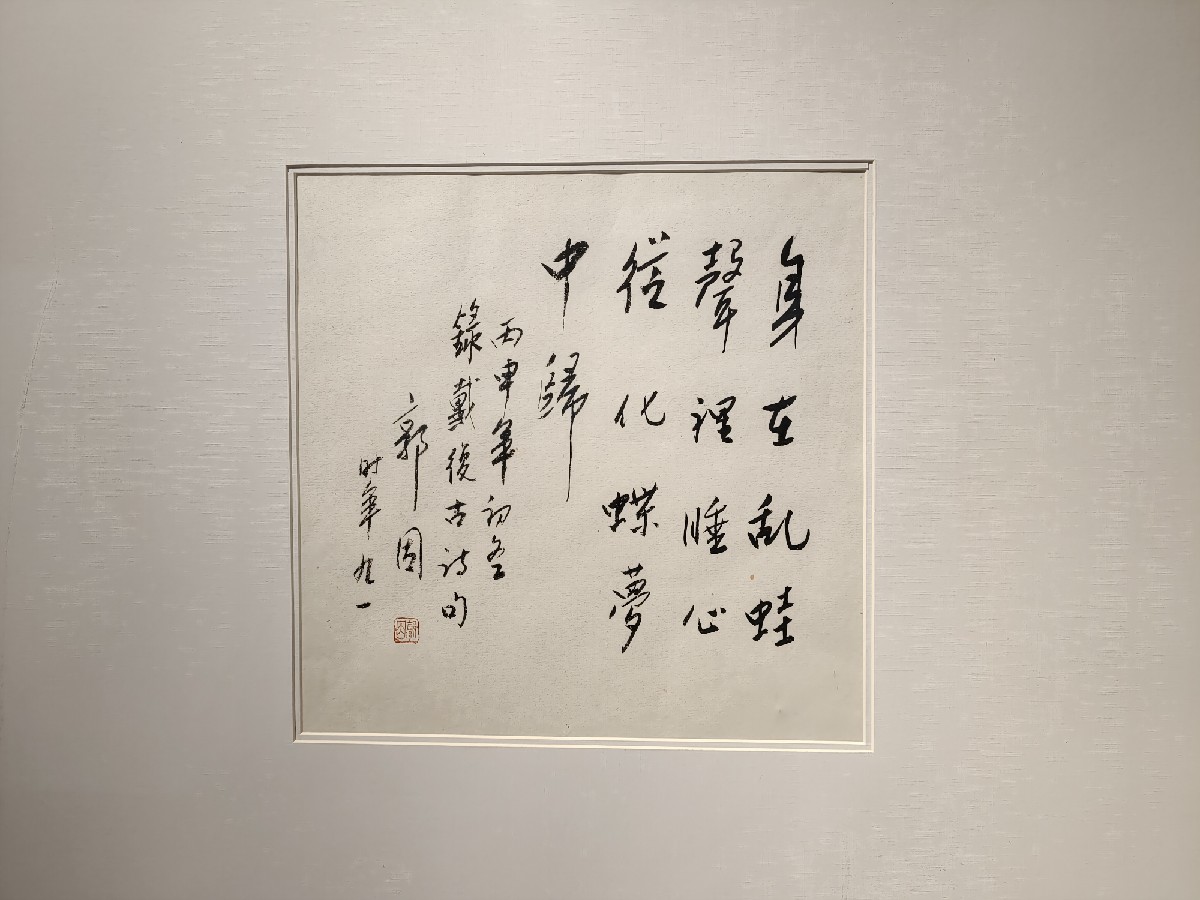 身在乱蛙
聲裡睡心
從化蝶夢
中歸
丙申年初冬
錄戴復古詩句
郭因
时年九一